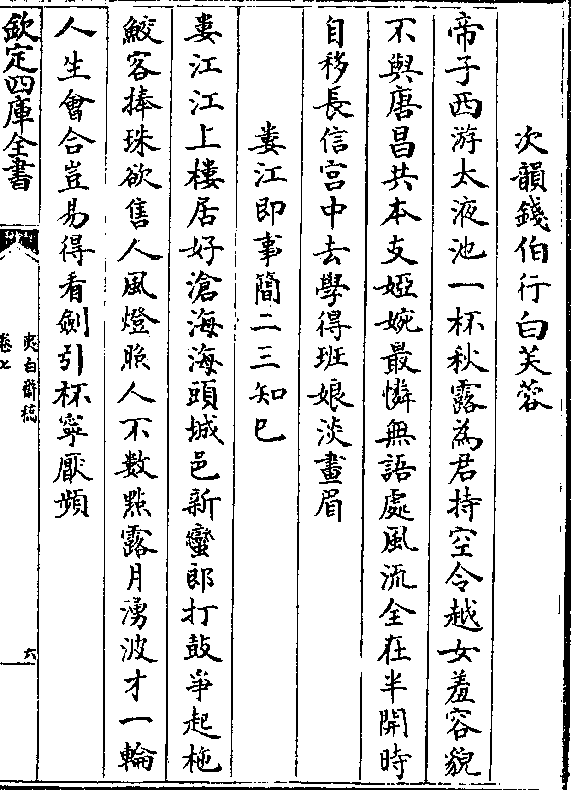 次韻錢伯行白芙蓉
帝子西游太液池一杯秋露為君持空令越女羞容貌
不與唐昌共本支婭婉最憐無語處風流全在半開時
自移長信宫中去學得班娘淡畫眉
婁江即事簡二三知己
婁江江上樓居好滄海海頭城邑新蠻郎打鼓爭起柂
鮫客捧珠欲售人風燈照人不數㸃露月湧波才一輪
人生會合豈易得看劍引杯寧厭頻
欽定四庫全書
夷白齋稿
卷七
六